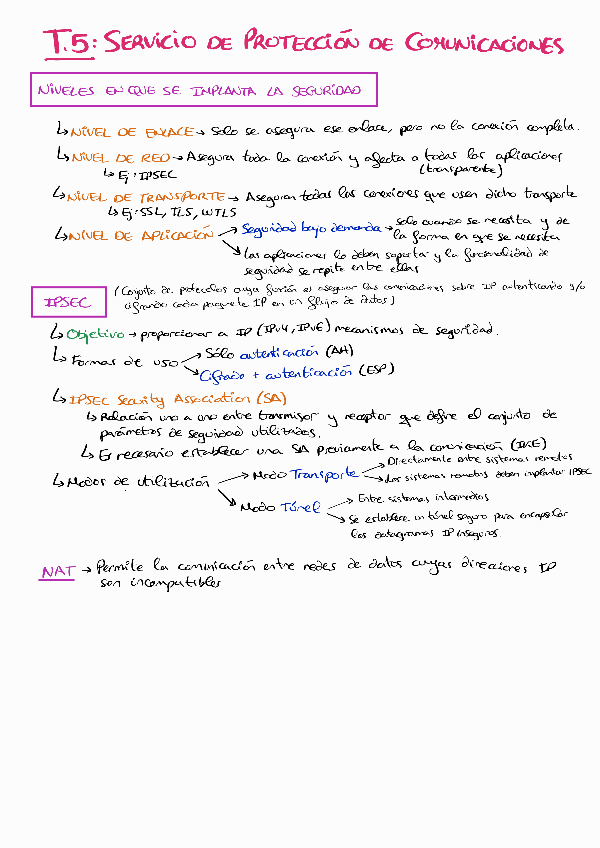 T.5: SERVICIO DE PROTECCIÓN DE COMUNICACIONES
NIVELES EN QUE SE IMPLANTA LA SEGURIDAD
↳ NIVEL DE ENLACE → Solo se asegura ese enlace, pero no la conexión completa.
↳ NIVEL DE RED → Asegura toda la conexión y afecta a todas las aplicaciones
(transparente)
↳ Ej: IPSEC
↳ NIVEL DE TRANSPORTE → Aseguran todas las conexiones que usen dicho transporte
↳ Ej: SSL, TLS, WTLS
↳ NIVEL DE APLICACIÓN → Seguridad bajo demanda → solo cuando se necesita y de
la forma en que se necesita
→ Las aplicaciones lo deben soportar y la funcionalidad de
seguridad se repite entre ellas
IPSEC (Conjunto de protocolos cuya función es asegurar las comunicaciones sobre IP autenticando y/o
cifrando cada paquete IP en un flujo de datos)
↳ Objetivo → proporcionar a IP (IPv4, IPv6) mecanismos de seguridad.
↳ Formas de uso → Sólo autenticación (AH)
→ Cifrado + autenticación (ESP)
↳ IPSEC Security Association (SA)
↳ Relación uno a uno entre transmisor y receptor que define el conjunto de
parámetros de seguridad utilizados.
↳ Es necesario establecer una SA previamente a la comunicación (IKE)
↳ Modos de utilización → Modo Transporte → Directamente entre sistemas remotos
→ Los sistemas remotos deben implantar IPSEC
→ Modo Túnel → Entre sistemas intermedios
→ Se establece un túnel seguro para encapsular
los datagramas IP inseguros.
NAT → Permite la comunicación entre redes de datos cuyas direcciones IP
son incompatibles